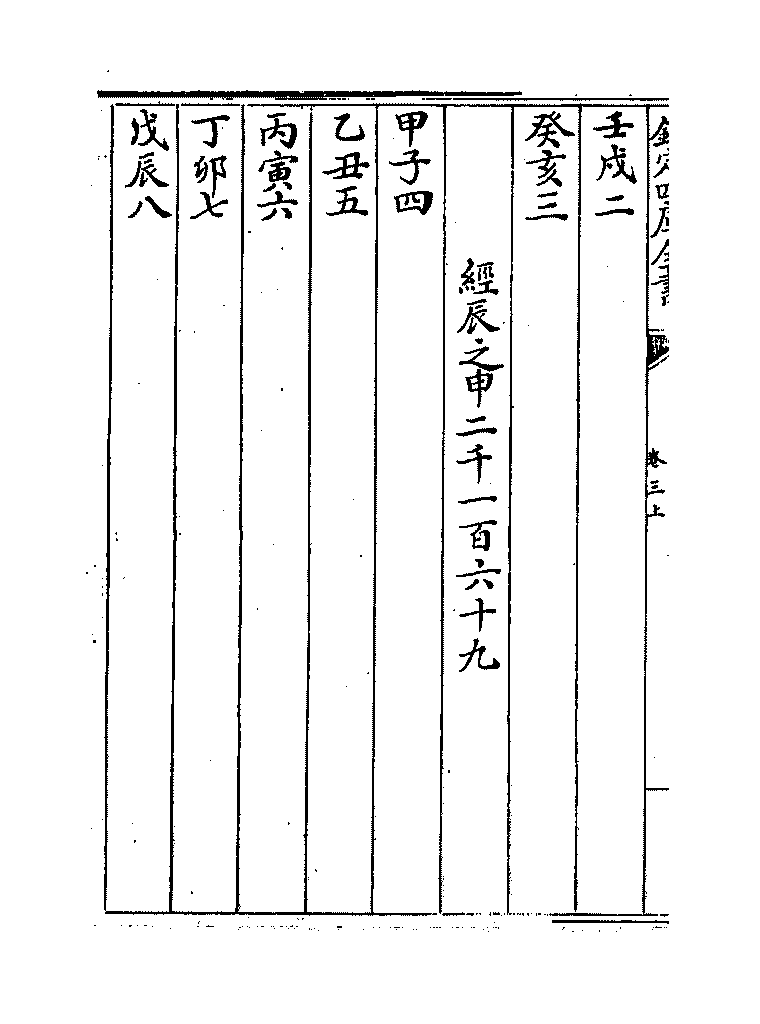 欽定四庫全書
卷三上
壬戌二
癸亥三
經辰之申二千一百六十九
甲子四
乙丑五
丙寅六
丁卯七
戊辰八